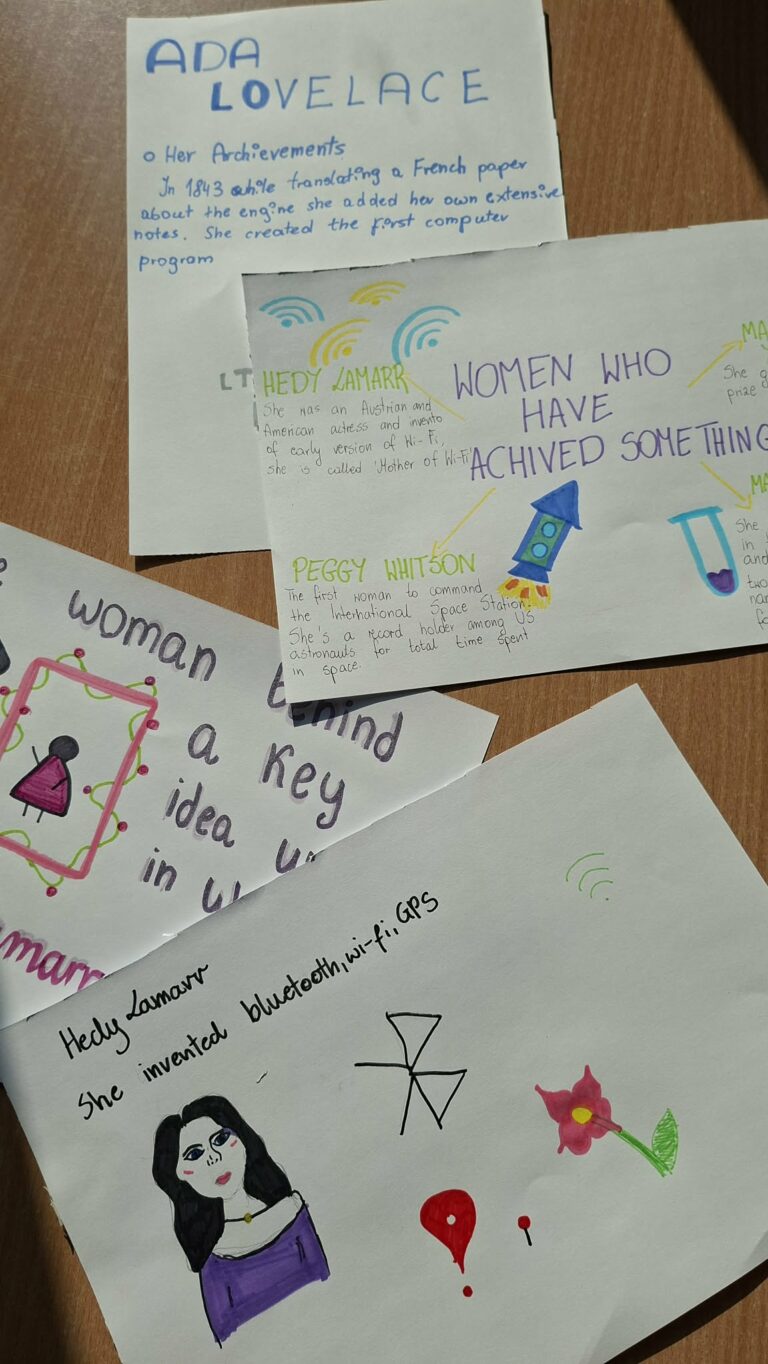 ADA
LOVELACE
o Her Archievements
In 1843 while translating a French paper
about the engine she added her own extensive
notes. She created the first computer
program
LT
HEDY LAMARR
She was an Austrian and
American actress and invento
of early version of Wi-Fi,
she is called 'Mother of Wi-Fi'
WOMEN WHO
HAVE
ACHIVED SOMETHING
MA
She g
prize
PEGGY WHITSON
The first woman to command
the International Space Station.
She's a record holder among US
astronauts for total time spent
in space.
MA
She
in
and
two
nar
fo
woman behind
a key
idea
in
marr
Hedy Lamarr
She invented bluetooth, wi-fi, GPS